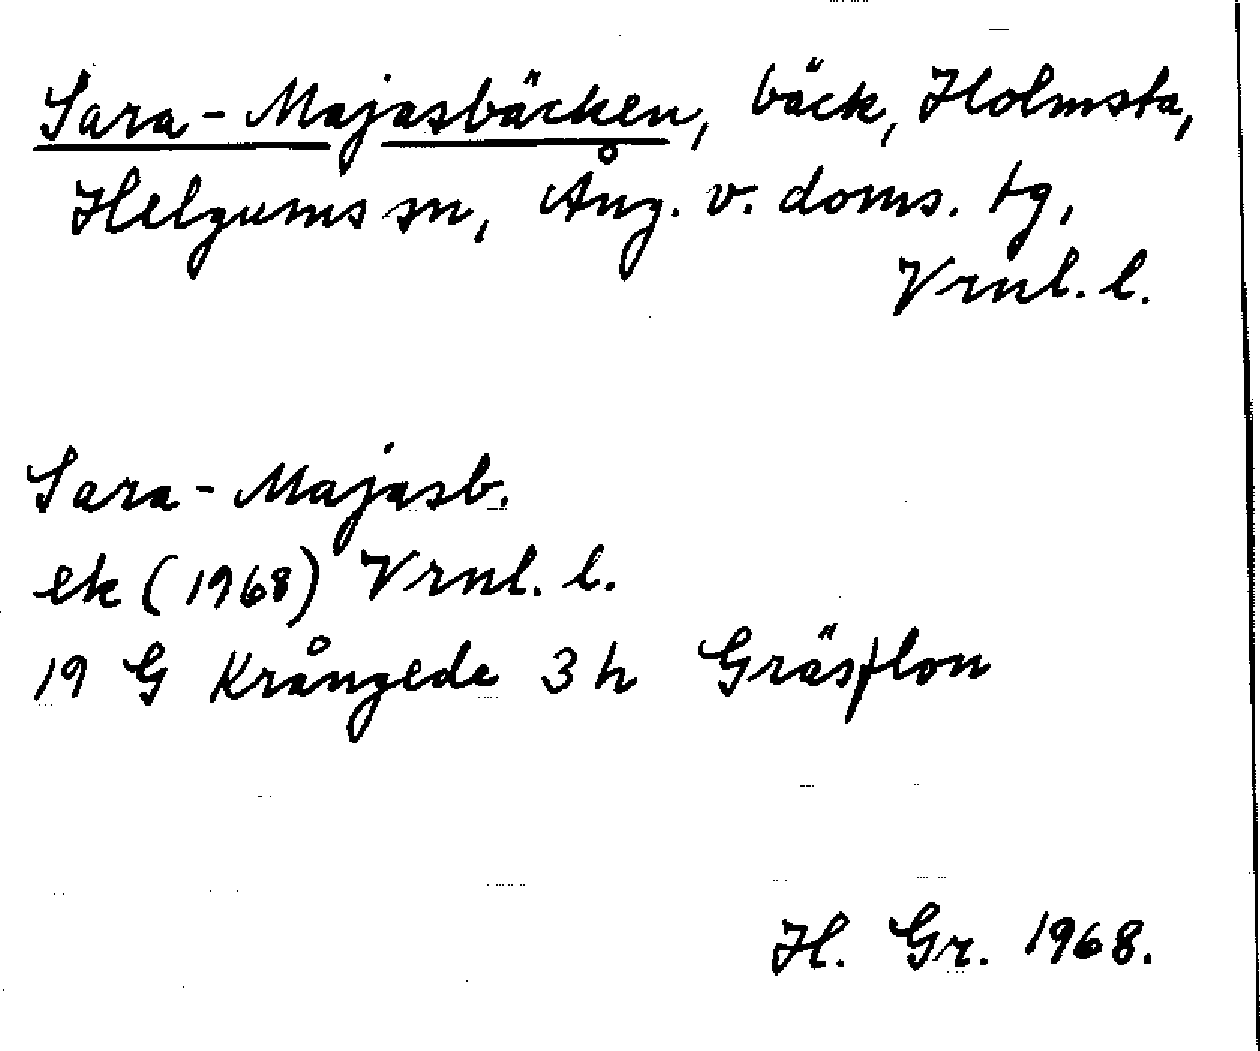 Sara-Majasbäcken, bäck, Holmsta,
Helgums sn, Ång. v. doms. tg,
Vrnl. l.
Sara-Majasb.
ek (1968) Vrnl. l.
19 G Krångede 3 h Gräsflon
H. Gr. 1968.